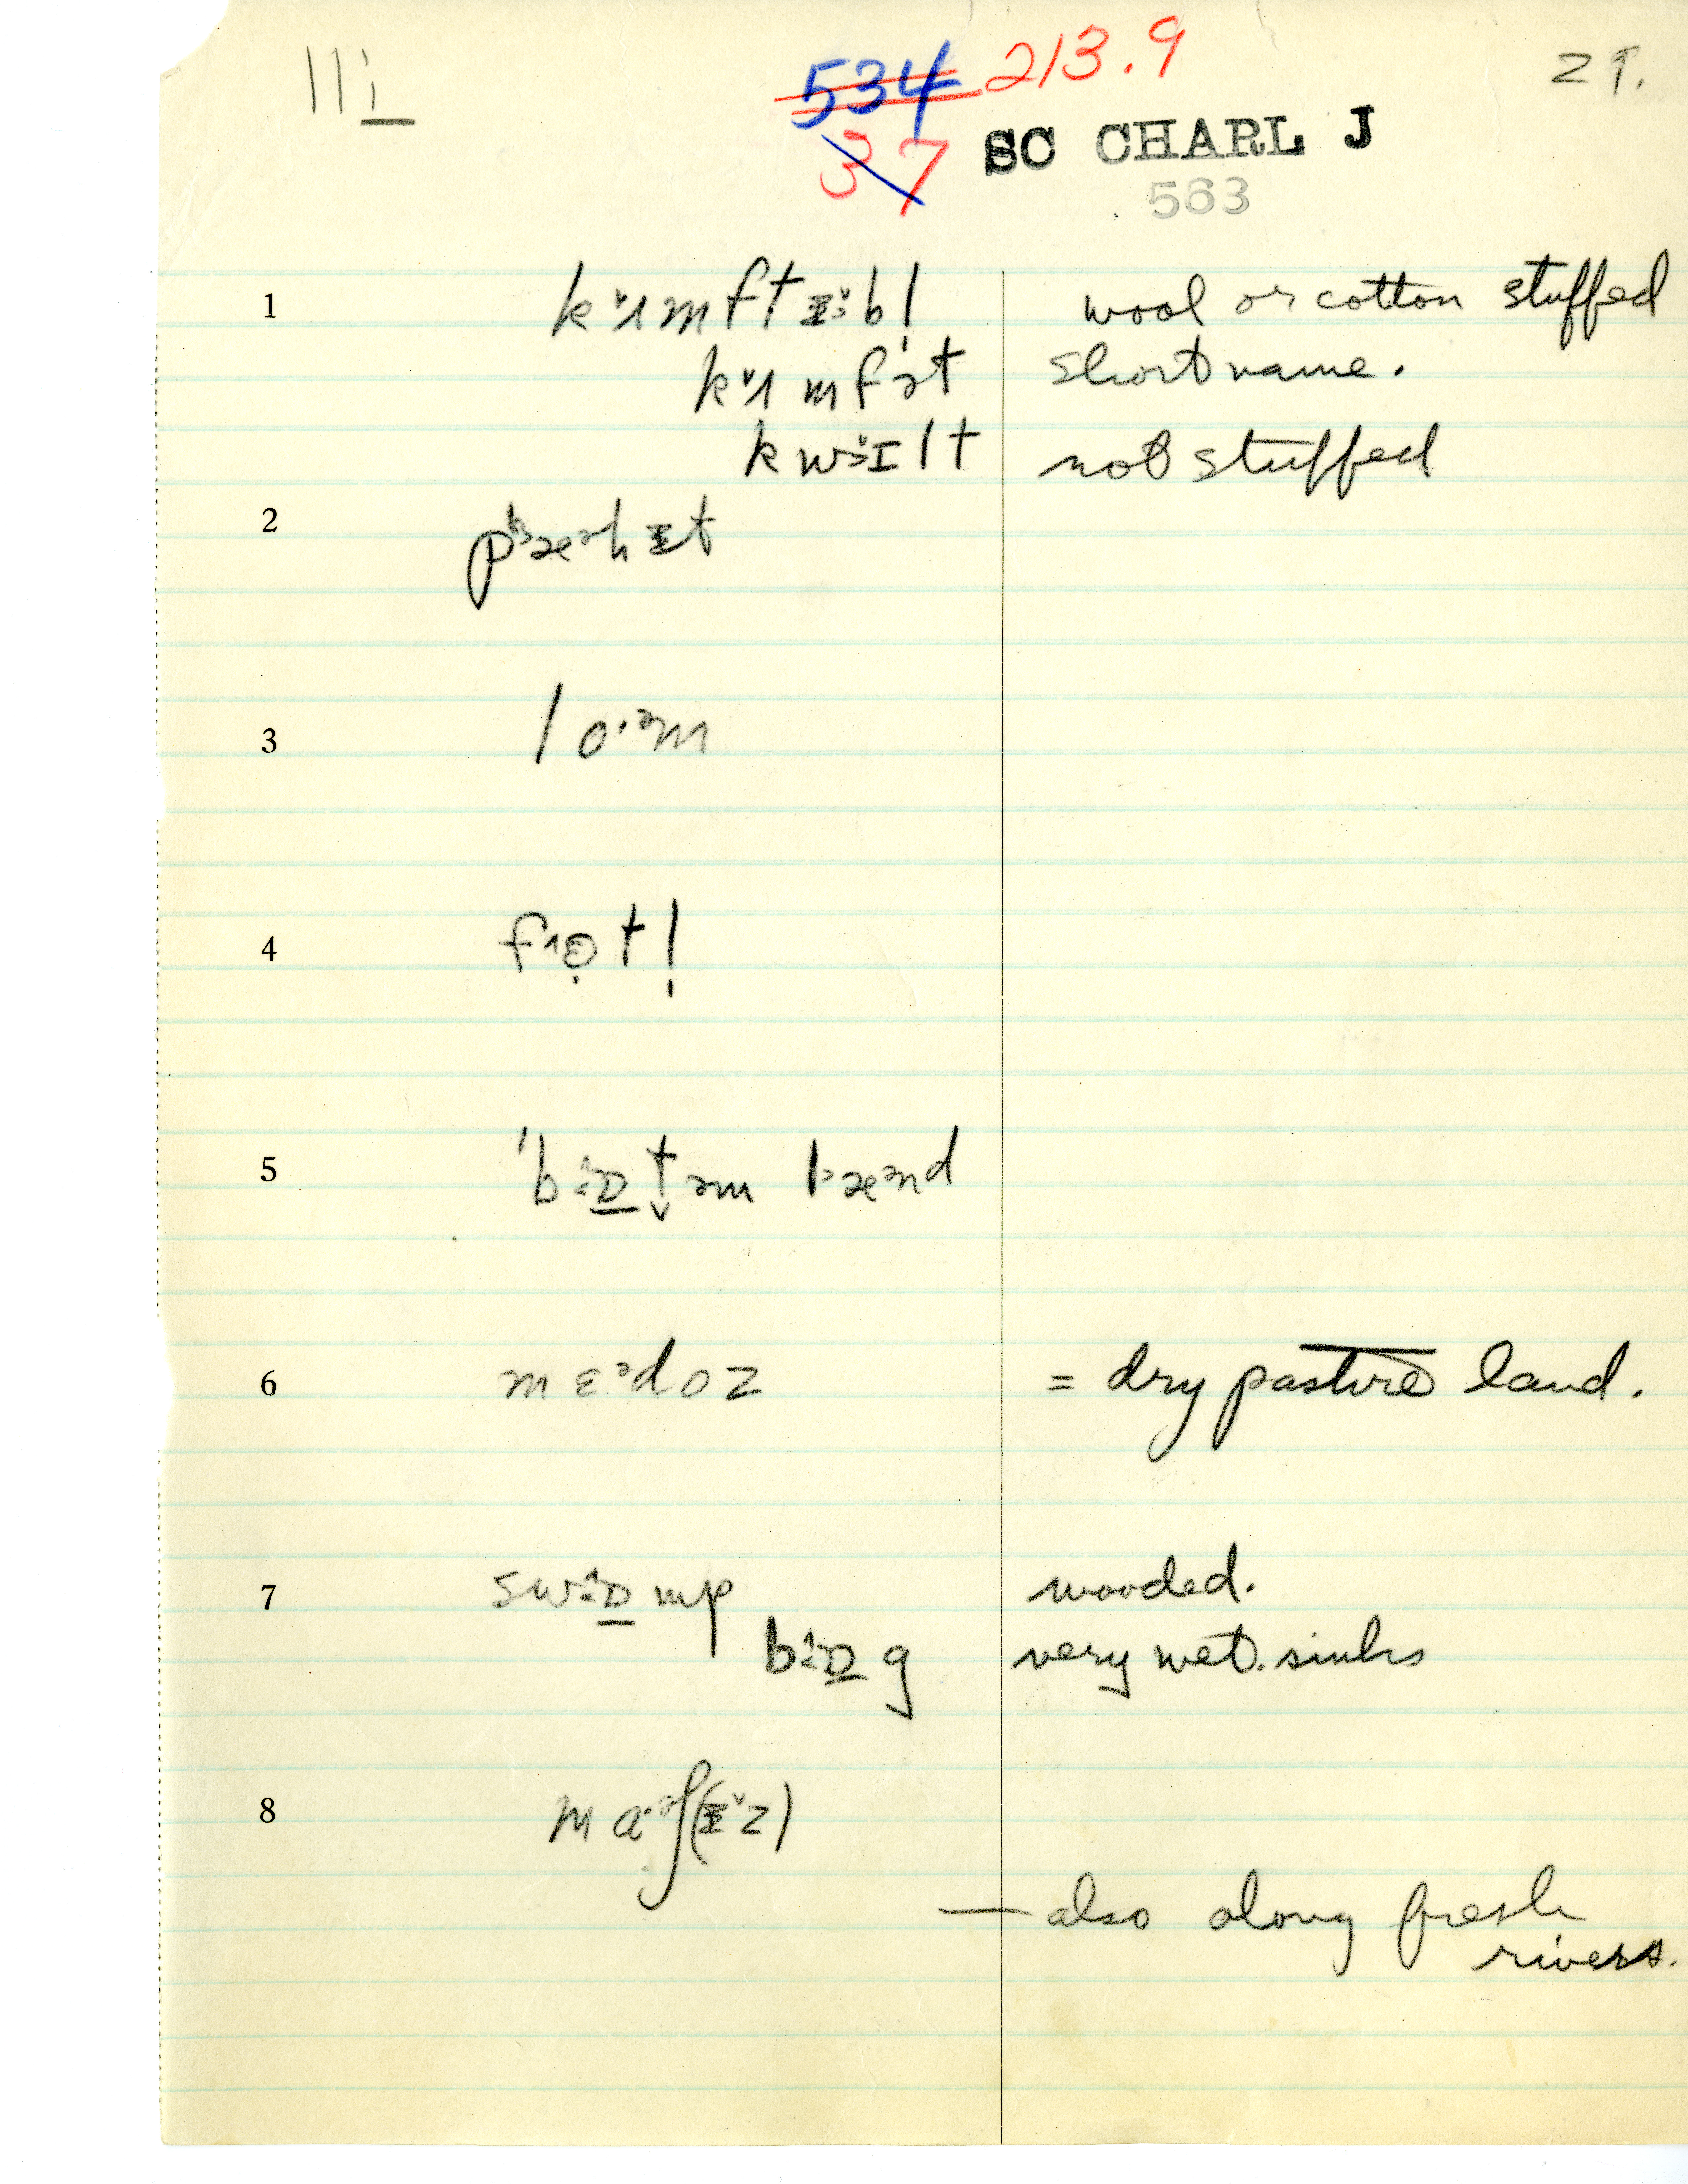 11i 534 213.9 29.
37 SC CHARL J
563
1 kʌmftɪbl wool or cotton stuffed
kʌmfət short name.
kwɪlt not stuffed
2
3 lo·ᵊm
4
5
6 mɛᵊdoz = dry pasture land.
7 swɒmp wooded.
bɒg very wet. sinks
8
— also along fresh
rivers.